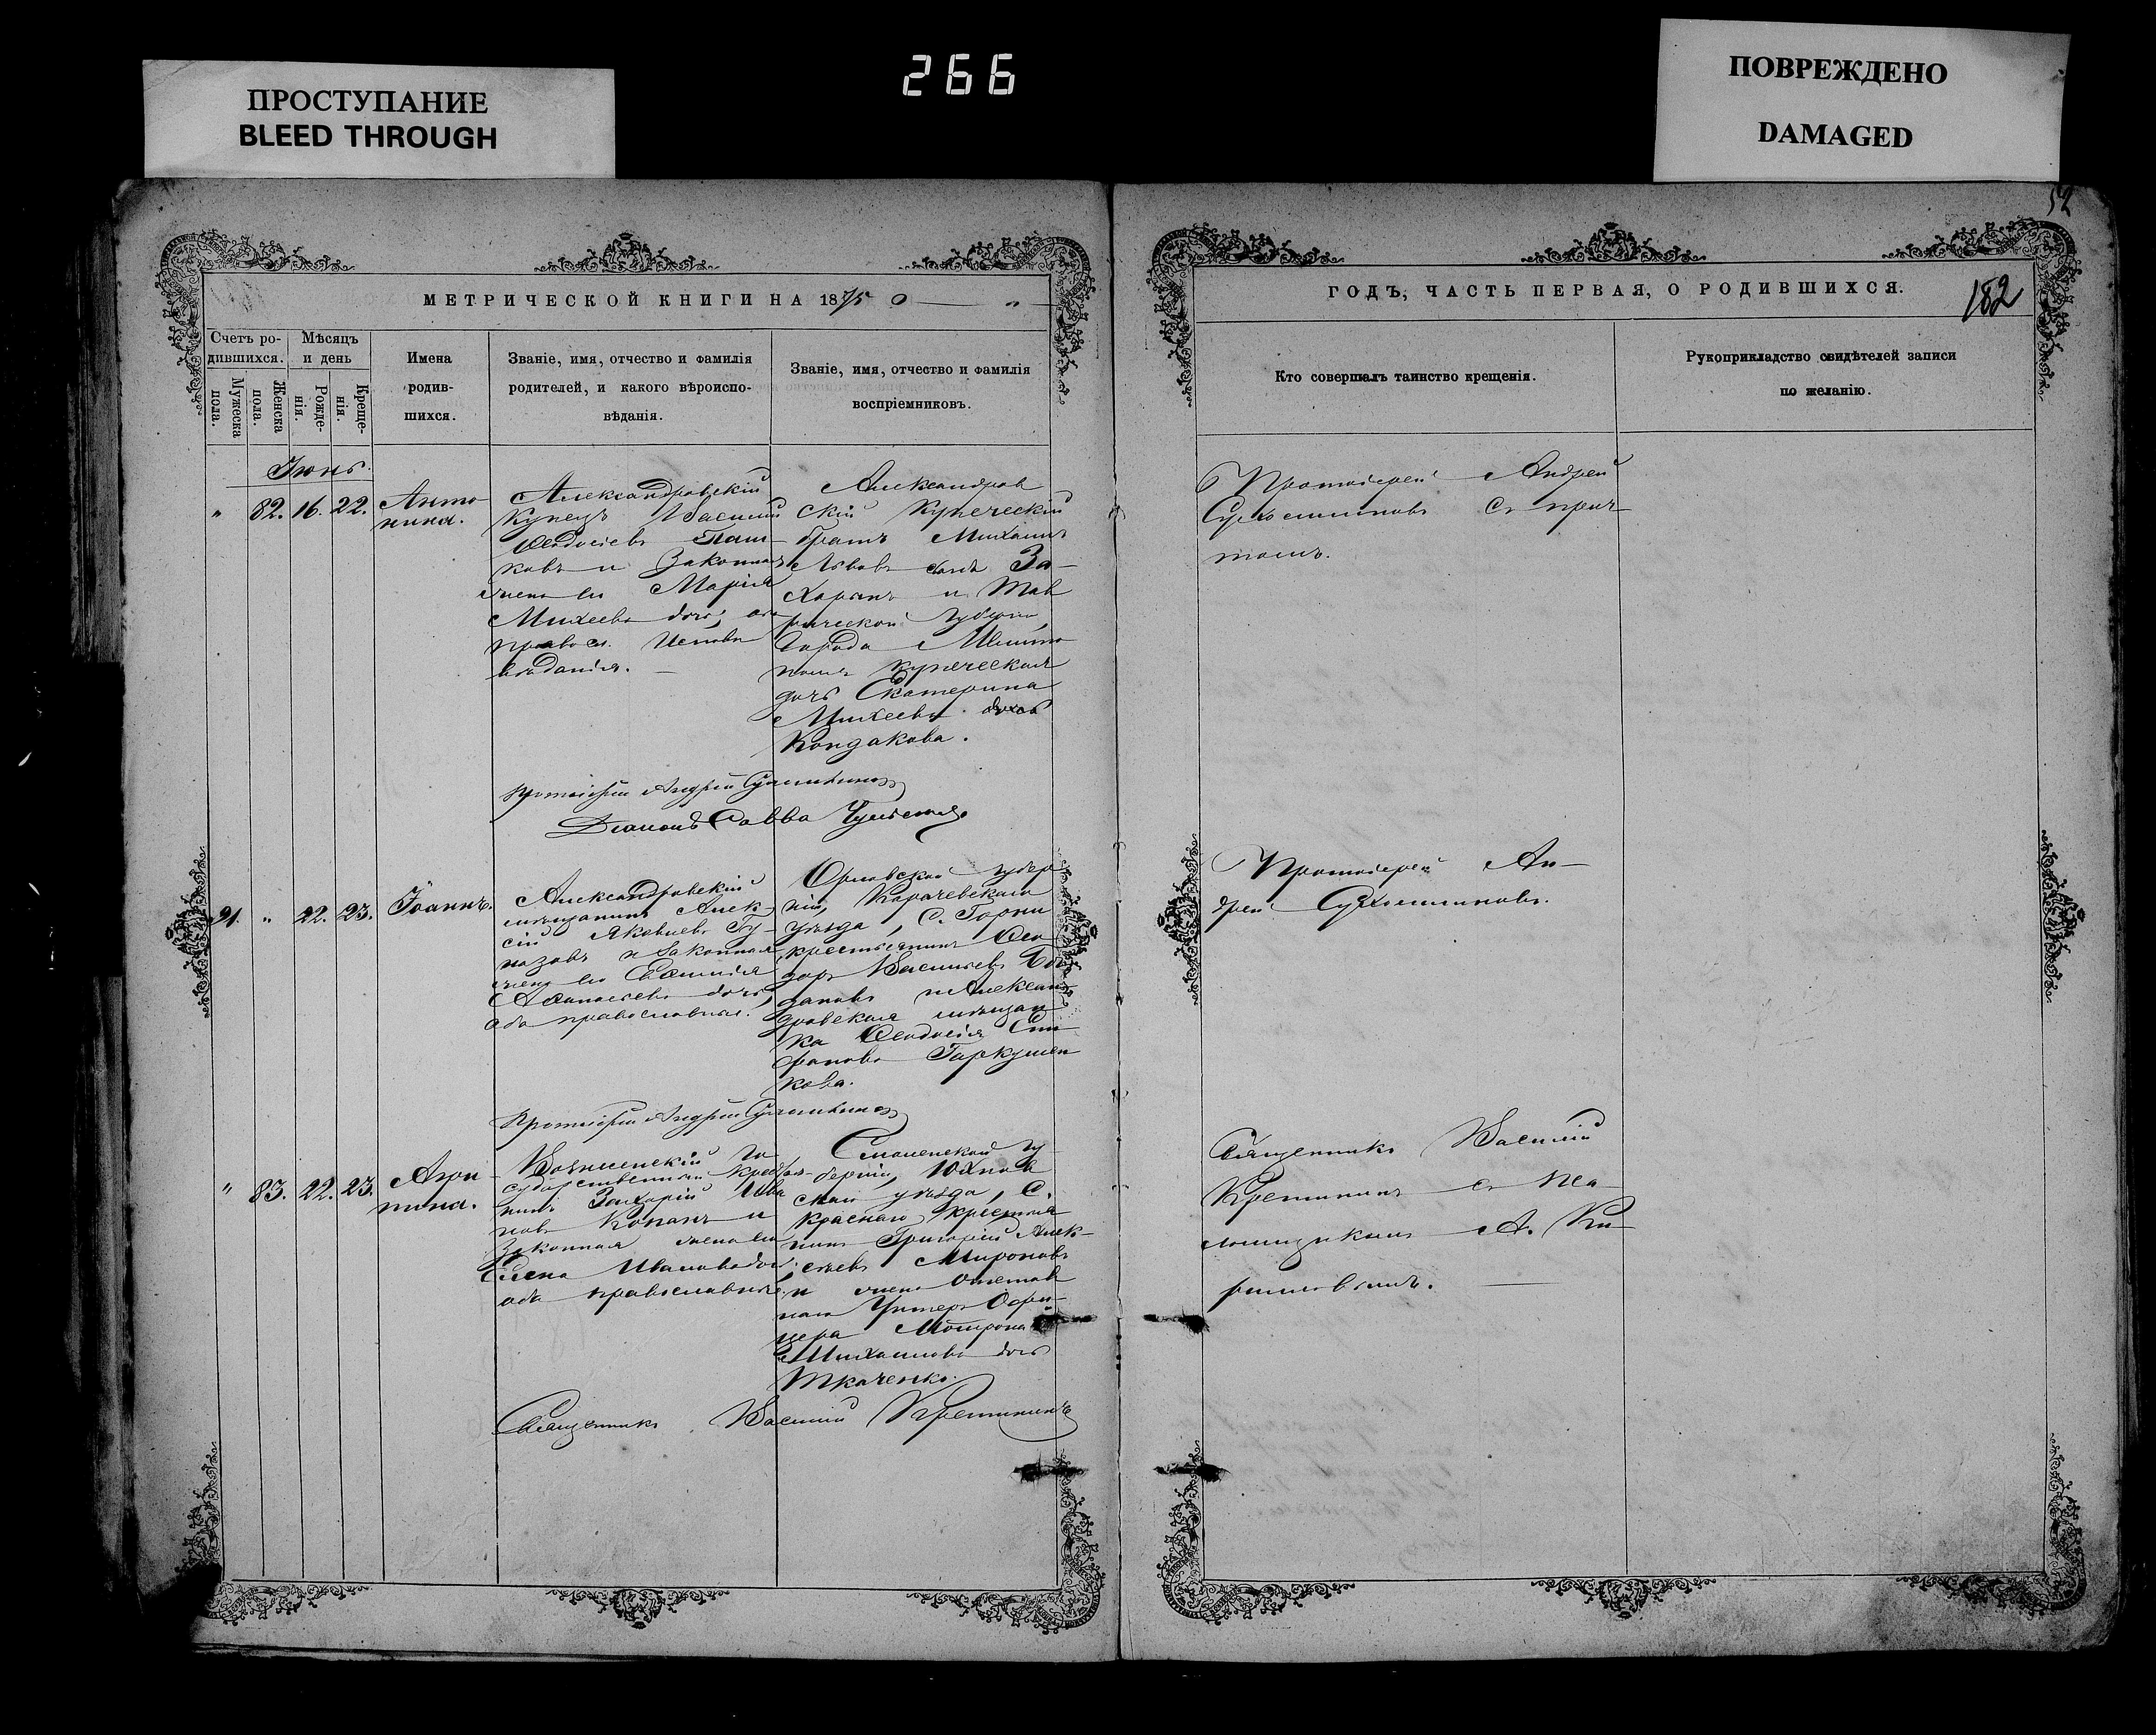 266
ПРОСТУПАНИЕ
BLEED THROUGH
ПОВРЕЖДЕНО
DAMAGED
52
МЕТРИЧЕСКОЙ КНИГИ НА 1875
Счетъ ро-
дившихся.
Мужеска
пола.
Женска
пола.
Мѣсяцъ
и день
Рожде-
нія.
Креще-
нія.
Имена
родив-
шихся.
Званіе, имя, отчество и фамилія
родителей, и какого вѣроиспо-
вѣданія.
Званіе, имя, отчество и фамилія
воспріемниковъ.
Іюнь.
" 82. 16. 22.
Анто
нина.
Александровскій
Купецъ Василій
Ѳеодосіевъ
ковъ и Законная
жена его Марія
Михеева дочь, оба
правосл. Испове
вѣданія.
Александров
скій Купеческій
братъ Михаилъ
Львовъ сынъ За-
харьинъ и Тав
рической Губерніи
города Мелито
поля купеческая
дочь Екатерина
Михеева дочь
Кондакова.
Протоіерей Андрей Сухомлиновъ
Діаконъ Савва
91. " 22. 23.
Іоаннъ.
Александровскій
мѣщанинъ Алек
сій Яковлевъ Пу-
зазовъ и законная
жена его Евфимія
Аѳанасіева дочь,
оба православные.
Орловской губер
ніи, Карачевскаго
уѣзда, С.
крестьянинъ Ѳео
доръ Васильевъ Бог
дановъ и Алексан
дровская мѣщан
ка Ѳеодосія Сти
фанова Гаркушен
кова.
Протоіерей Андрей Сухомлиновъ
" 83. 22. 23.
Агри
пина.
Вознесенскій го
сударственный крестья-
нинъ Захарій Ива
новъ Копанъ и
Законная жена его
Елена Иванова дочь,
оба православные.
Смоленской гу
берніи, Юхнов
скаго уѣзда, С.
Краснаго крестья
нинъ Григорій Алек-
сѣевъ Мироновъ
и жена отстав
наго Унтеръ Офи-
цера Матрона
Михаилова дочь
Ткаченко.
Священникъ Василій Кретининъ
ГОДЪ, ЧАСТЬ ПЕРВАЯ, О РОДИВШИХСЯ.
182
Кто совершалъ таинство крещенія.
Рукоприкладство свидѣтелей записи
по желанію.
Протоіерей Андрей
Сухомлиновъ съ прич-
томъ.
Протоіерей Ан-
дрей Сухомлиновъ.
Священникъ Василій
Кретининъ съ пса
ломщикомъ А. Ки-
рилловымъ.